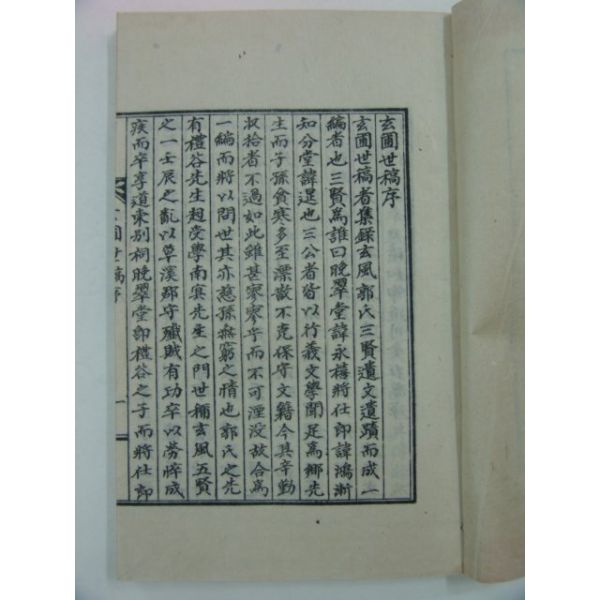 玄圃世稿序
玄圃世稿者集錄玄風郭氏三賢遺文遺蹟而成一
編者也三賢爲誰曰晩翠堂諱永禧將仕郞諱鴻漸
知分堂諱𨓏也三公者皆以行義文學聞足爲鄕先
生而子孫貧寒多至漂散不克保守文籍今其辛勤
収拾者不過如此雖甚寥寥乎而不可湮没故合爲
一編而將以問世其亦慈孫無窮之情也郭氏之先
有禮谷先生䞭受學南冥先生之門世稱玄風五賢
之一壬辰之亂以草溪郡守殲賊有功卒以勞悴成
疾而卒享道東別祠晩翠堂卽禮谷之子而將仕郞
玄圃世稿序
一